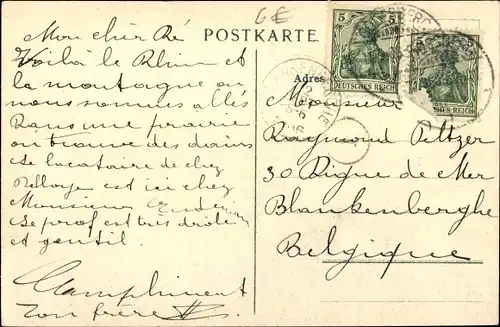 GE
POSTKARTE.
5 5
DEUTSCHES REICH
DEUTSCHES REICH
Mon cher Ré
Voilà le Rhin et
la montagne ou
nous sommes allés
Dans une prairie
on trouve des
Le locataire de chez
est ici chez
Monsieur
Le prof est très drôle
et gentil.
Compliment
Ton frère
Adres
Monsieur
Raymond Peltzer
30 Digue de Mer
Blankenberghe
Belgique